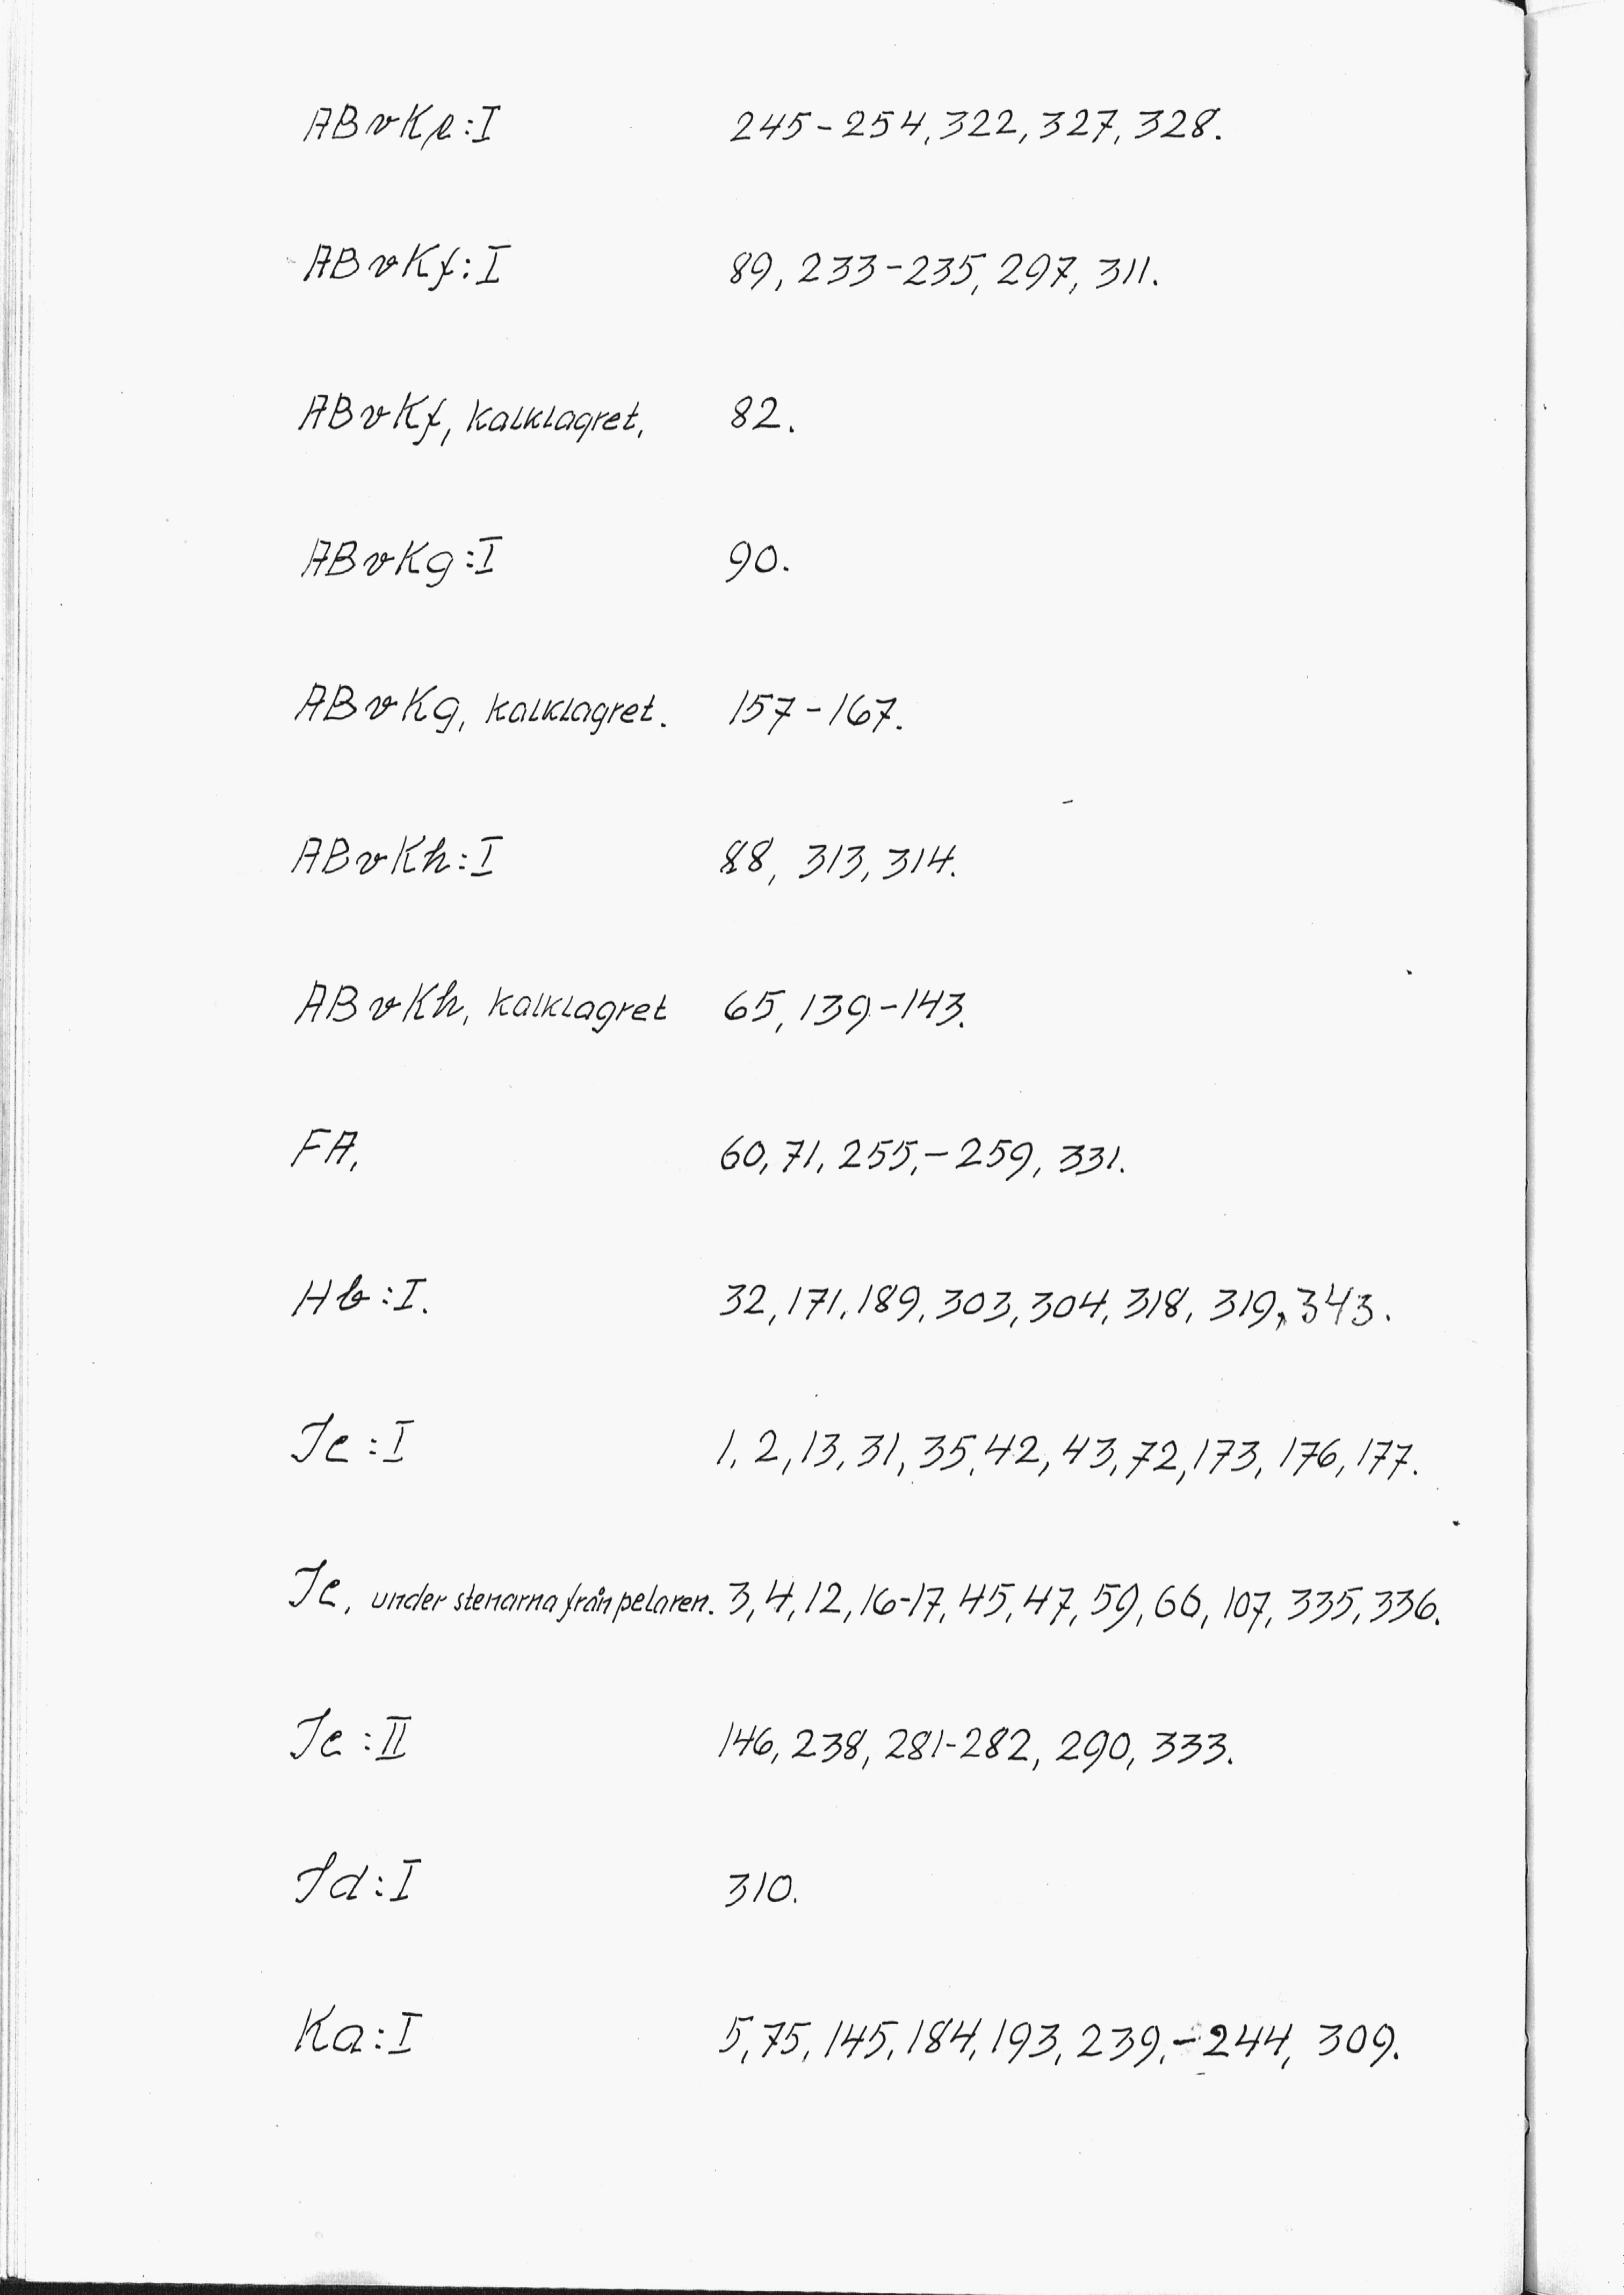 ABvKe:I 245-254, 322, 327, 328.
ABvKf:I 89, 233-235, 297, 311.
ABvKf, kalklagret, 82.
ABvKg:I 90.
ABvKg, kalklagret. 157-167.
ABvKh:I 88, 313, 314.
ABvKh, kalklagret 65, 139-143.
FA, 60, 71, 255,-259, 331.
Hb:I. 32, 171, 189, 303, 304, 318, 319, 343.
Ic:I 1, 2, 13, 31, 35, 42, 43, 72, 173, 176, 177.
Ic, under stenarna från pelaren. 3, 4, 12, 16-17, 45, 47, 59, 66, 107, 335, 336.
Ic:II 146, 238, 281-282, 290, 333.
Id:I 310.
Ka:I 5, 75, 145, 184, 193, 239,-244, 309.